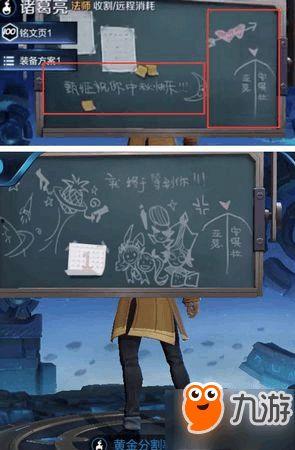 诸葛亮 法师 收割/远程消耗
100 铭文页1
装备方案1
甄姬祝你中秋快乐!!!
亚瑟 安琪拉
我终于等到你!!!
亚瑟 安琪拉
1
黄金分割
九游